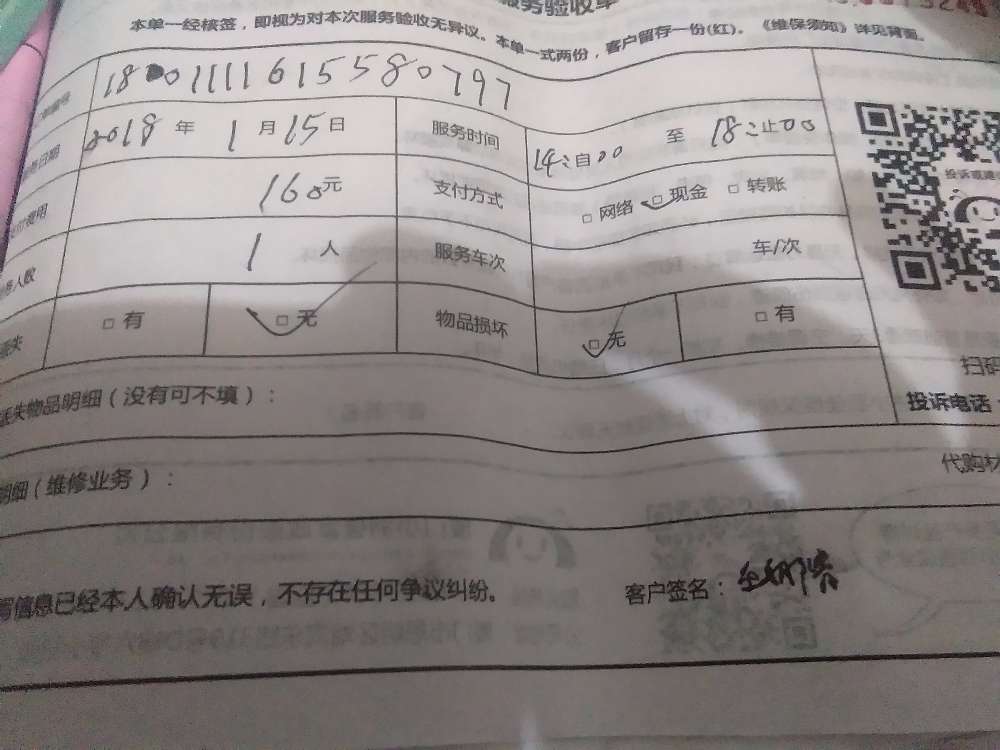 服务验收单
本单一经核签，即视为对本次服务验收无异议。本单一式两份，客户留存一份(红)。《维保须知》详见背面。
编号 18 011116155 80797
日期 2018 年 1 月 15 日 服务时间 14:自00 至 18:止00
费用 160元 支付方式 □ 网络 □ 现金 □ 转账
人数 1 人 服务车次 车/次
丢失 □ 有 □ 无 物品损坏 □ 无 □ 有
投诉或建
扫码
丢失物品明细（没有可不填）： 投诉电话：
明细（维修业务）： 代购材
信息已经本人确认无误，不存在任何争议纠纷。 客户签名：